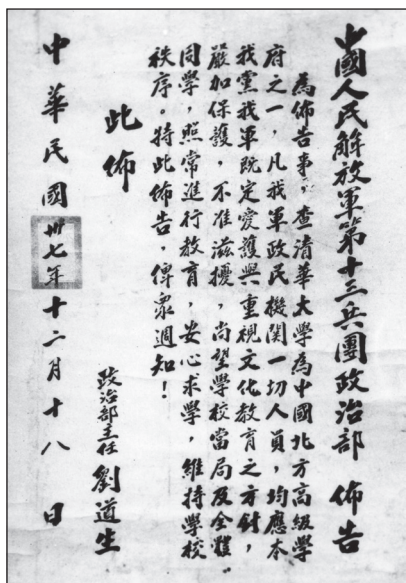 中國人民解放軍第十三兵團政治部 佈告
為佈告事,查清華大學為中國北方高級學
府之一,凡我軍政民機関一切人員,均應本
我黨我軍既定愛護與重視文化教育之方針,
嚴加保護,不准滋擾,尚望學校當局及全體
同學,照常進行教育,安心求學,維持學校
秩序。特此佈告,俾衆週知!
此佈
政治部主任 劉道生
中華民國卅七年十二月十八日